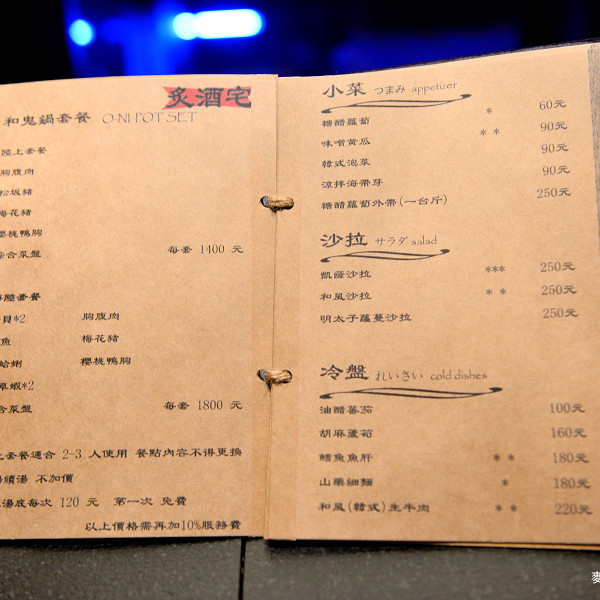 炙酒宅
和鬼鍋套餐 O-NI POT SET
陸上套餐
胸腹肉
松坂豬
梅花豬
櫻桃鴨胸
綜合菜盤 每套 1400 元
海陸套餐
貝*2 胸腹肉
魚 梅花豬
蛤蜊 櫻桃鴨胸
草蝦*2
合菜盤 每套 1800 元
上套餐適合 2-3 人使用 餐點內容不得更換
湯頭湯 不加價
湯底每次 120 元 第一次 免費
以上價格需再加10%服務費
小菜 つまみ appetizer
糖醋蘿蔔 * 60元
味噌黃瓜 * * 90元
韓式泡菜 90元
涼拌海帶芽 90元
糖醋蘿蔔外帶(一台斤) 250元
沙拉 サラダ salad
凱薩沙拉 *** 250元
和風沙拉 * * 250元
明太子蘿蔓沙拉 250元
冷盤 れいさい cold dishes
油醋蕃茄 100元
胡麻蘆筍 160元
鱈魚魚肝 * * 180元
山藥細麵 * 180元
和風(韓式)生牛肉 * * 220元
麥